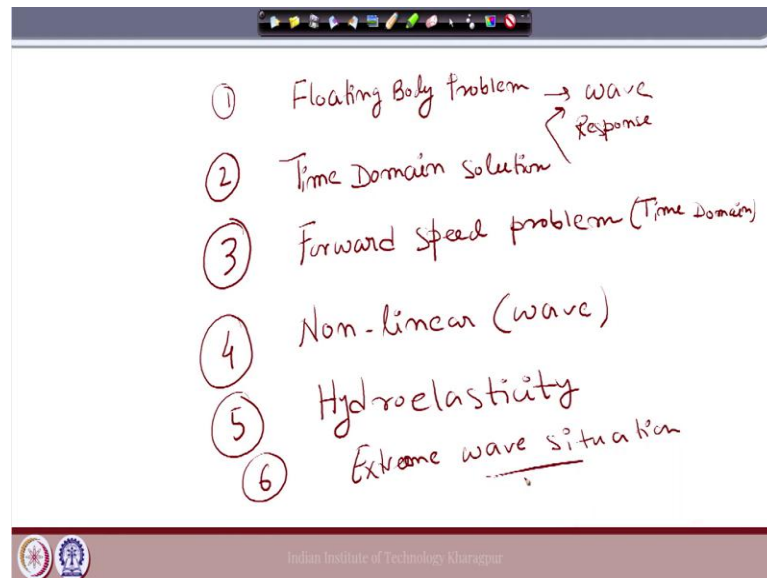 ① Floating Body Problem → wave
Response
② Time Domain solution
③ Forward speed problem (Time Domain)
④ Non-linear (wave)
⑤ Hydroelasticity
⑥ Extreme wave situation
Indian Institute of Technology Kharagpur